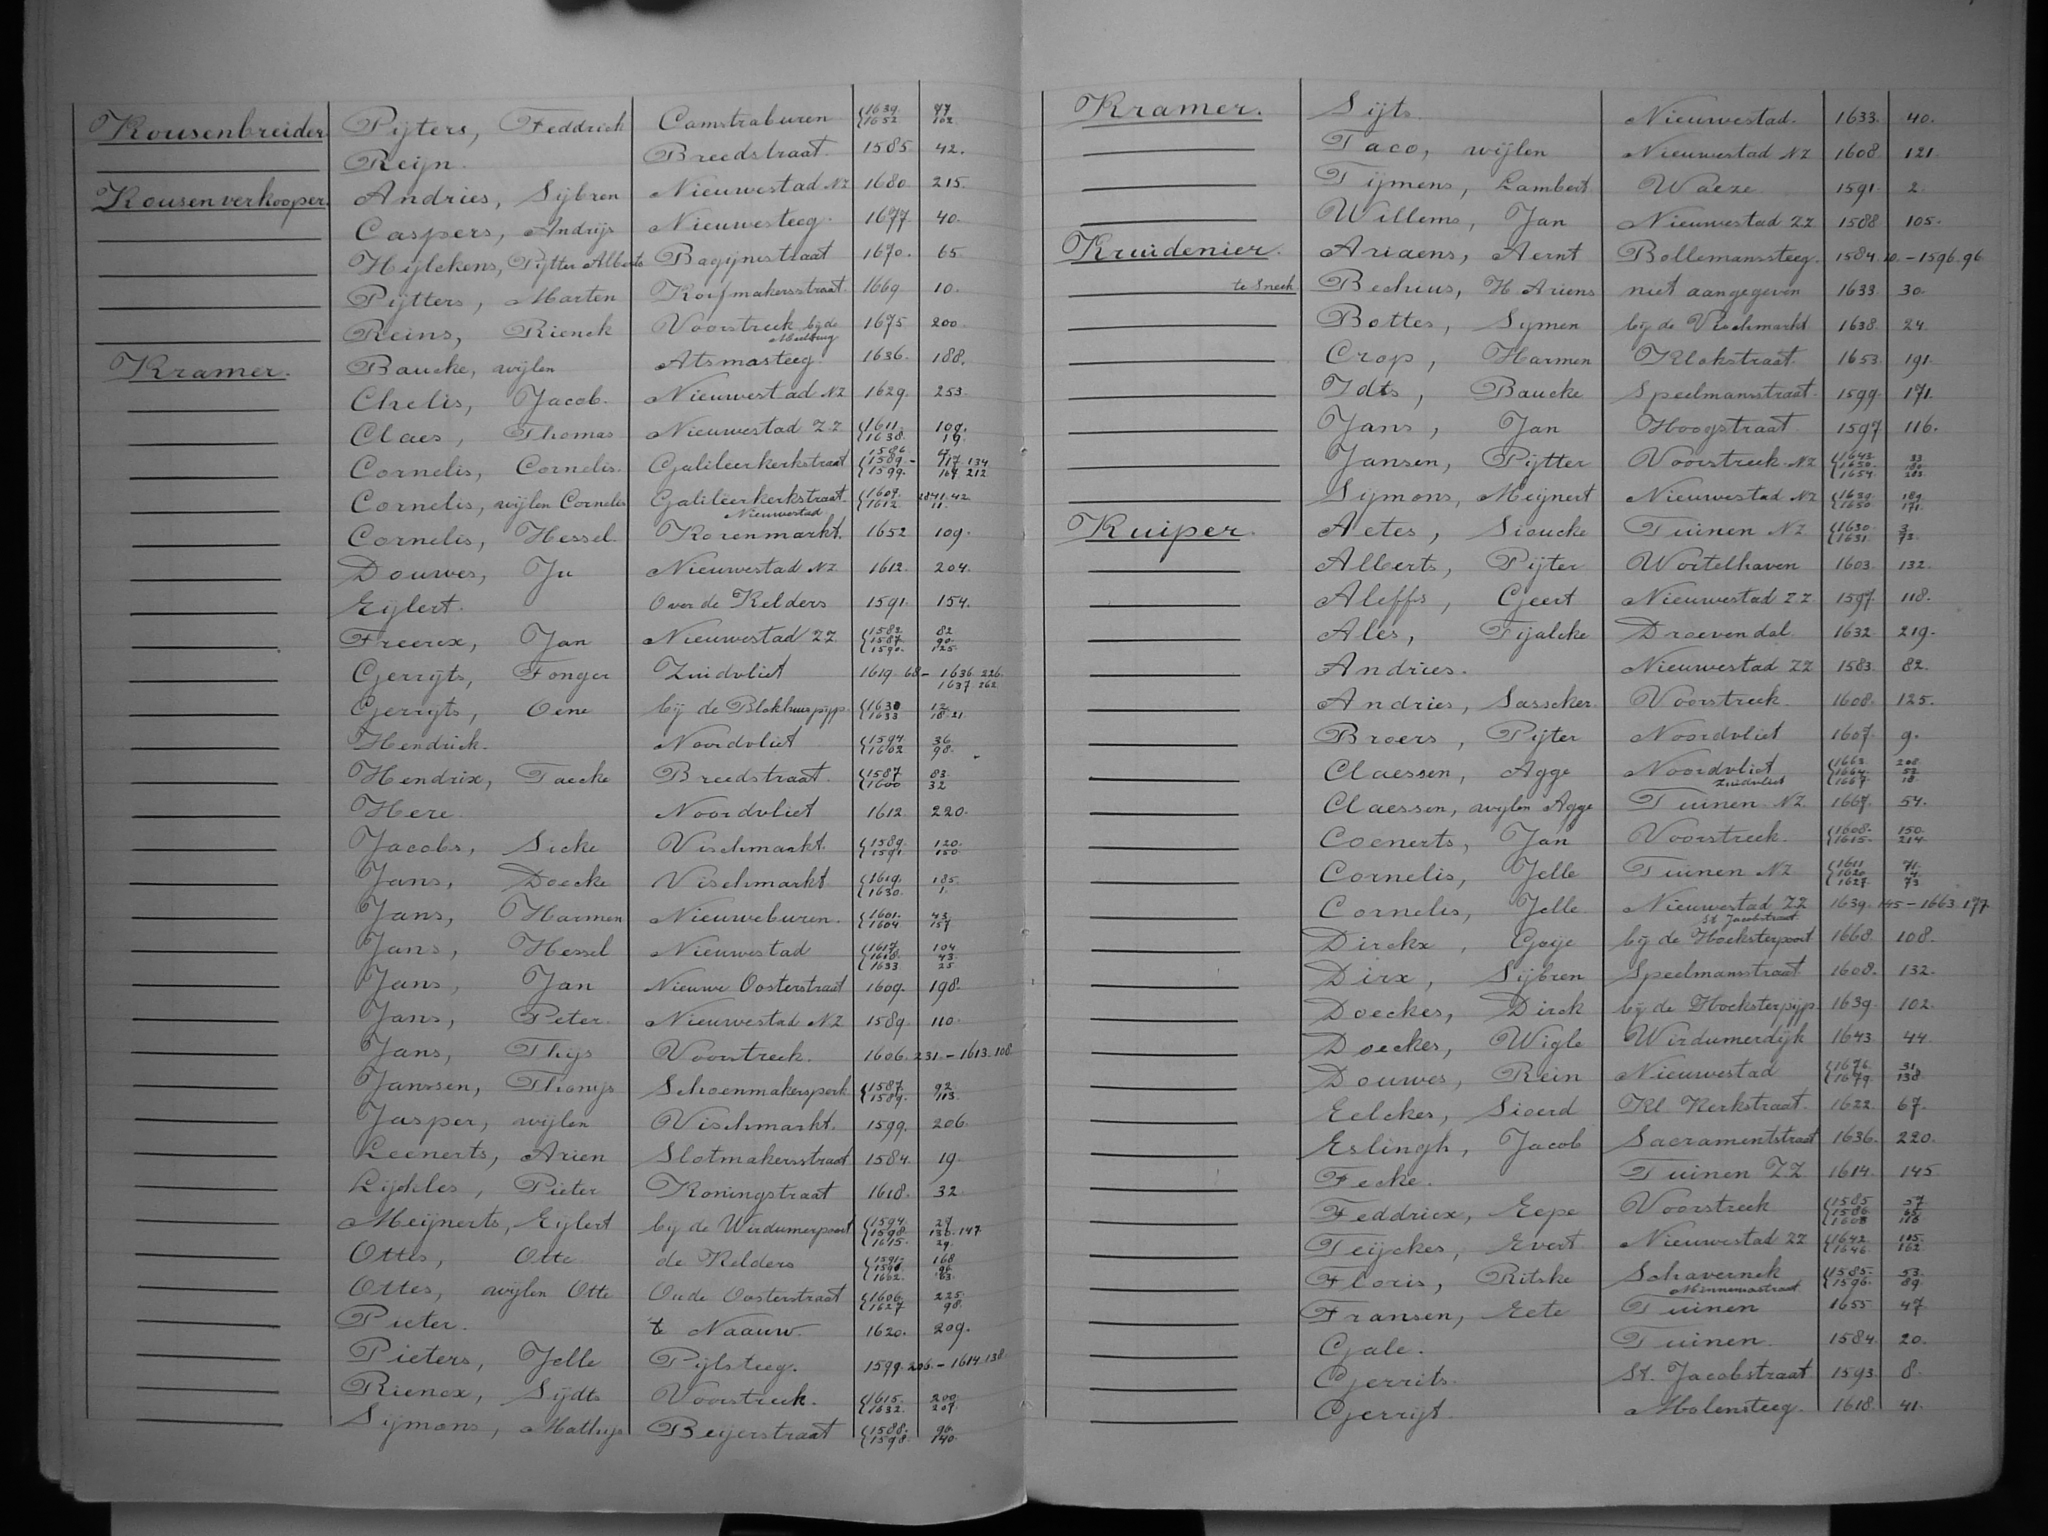 Kousenbreider Pijters, Feddrick Camstraburen 1639. 1652 77. 162.
Reijn. Breedstraat. 1585 42.
Kousenverkooper. Andries, Sijbren Nieuwestad NZ 1680. 215.
Caspers, Andrijs Nieuwesteeg. 1677. 40.
Hijlckens, Pijtter Alberts Bagijnestraat 1670. 65.
Pijtters, Marten Koifmakersstraat 1669. 10.
Reins, Rienck Voorstreek bij de 1675 200.
Kramer. Baucke, wijlen Atsmasteeg. 1636. 188.
Chelis, Jacob. Nieuwestad NZ 1629. 253.
Claes, Thomas Nieuwestad ZZ 1611. 1638. 109. 19.
Cornelis, Cornelis. Galileerkerkstraat 1586 1589. - 1599. 117 134 212
Cornelis, wijlen Cornelis Galileerkerkstraat. Nieuwestad 1609. 1612. 42 11.
Cornelis, Hessel Korenmarkt. 1652 109.
Douwes, Ju Nieuwestad NZ 1612. 204.
Eijlert. Over de Kelders 1591. 154.
Freerix, Jan Nieuwestad ZZ 1582. 1587. 1590. 82 90. 125.
Gerrijts, Fonger Zuidvliet 1619. 68 - 1636. 226. 1637. 262.
Gerrijts, Oene bij de Blokhuispijp. 1630 1633 12. 18. 21.
Hendrick. Noordvliet 1594. 1602 36 98.
Hendrix, Taecke Breedstraat. 1587 1600 83. 32
Here. Noordvliet 1612 220.
Jacobs, Sicke Vischmarkt. 1589. 1591. 120. 150.
Jans, Doecke Vischmarkt 1619. 1630. 185. 1.
Jans, Harmen Nieuweburen. 1601. 1604 43. 157
Jans, Hessel Nieuwestad 1617. 1618. 1633 104 43. 25
Jans, Jan Nieuwe Oosterstraat 1609. 198.
Jans, Peter. Nieuwestad NZ 1589. 110.
Jans, Thijs Voorstreek. 1606. 231. - 1613. 108.
Janssen, Thonijs Schoenmakersperk 1587. 1589. 92. 113.
Jasper, wijlen Vischmarkt. 1599. 206.
Leenerts, Arien Slotmakersstraat 1584. 19.
Lijckles, Pieter Koningstraat 1618. 32.
Meijnerts, Eijlert bij de Wirdumerpoort 1594. 1598. 1615. 29. 136. 147 29.
Ottes, Otte de Kelders 1602. 168 63.
Ottes, wijlen Otte Oude Oosterstraat 1606. 1627 225. 98.
Pieter. 't Naauw. 1620. 209.
Pieters, Jelle Pijlsteeg. 1599. 206. - 1614. 138.
Rienex, Sijdts Voorstreek. 1615. 1632. 200. 207.
Sijmons, Mathijs Beijerstraat 1588. 1598. 90. 140.
Kramer. Sijts. Nieuwestad. 1633. 40.
Taco, wijlen Nieuwestad NZ 1608. 121.
Tijmens, Lambert Waeze 1591. 2.
Willems, Jan Nieuwestad ZZ 1588 105.
Kruidenier. Ariaens, Aernt Bollemanssteeg. 1584. 10. - 1596. 96
te Sneek Bechius, H Ariens niet aangegeven 1633. 30.
Bottes, Symen bij de Vischmarkt 1638. 24.
Crop, Harmen Klokstraat. 1653. 191.
Idts, Baucke Speelmansstraat. 1599. 171.
Jans, Jan Hoogstraat. 1597 116.
Jansen, Pijtter Voorstreek. NZ 1643. 1650. 1654. 33. 180. 203.
Sijmons, Meijnert Nieuwestad NZ 1639. 1650. 189. 171.
Kuiper. Aetes, Sioucke Tuinen NZ 1630. 1631. 3. 73.
Alberts, Pijter Wortelhaven 1603. 132.
Aleffs, Geert Nieuwestad ZZ. 1597. 118.
Ales, Tijalcke Droevendal. 1632. 219.
Andries. Nieuwestad ZZ 1583. 82.
Andries, Sasscker. Voorstreek. 1608. 125.
Broers, Pijter Noordvliet 1607. 9.
Claessen, Agge Noordvliet Zuidvliet 1662. 1664. 1667. 208. 52. 18.
Claessen, wijlen Agge Tuinen NZ. 1667. 54.
Coenerts, Jan Voorstreek. 1608. 1615. 150. 214.
Cornelis, Jelle Tuinen NZ 1611 1620 1627. 71. 4. 73
Cornelis, Jelle. Nieuwestad ZZ St. Jacobstraat. 1639. 145 - 1663. 177
Dirckx, Goije bij de Hoeksterpoort 1668. 108.
Dirx, Sijbren Speelmansstraat 1608. 132.
Doeckes, Dirck bij de Hoeksterpijp 1639. 102.
Doeckes, Wigle Wirdumerdijk 1643. 44.
Douwes, Rein Nieuwestad 1676. 1679. 31. 138.
Eelckes, Sioerd Kl. Kerkstraat. 1622. 67.
Eslingh, Jacob Sacramentstraat 1636. 220.
Fecke. Tuinen ZZ 1614. 145.
Feddriex, Eepe Voorstreek 1585. 1586. 1608 57 65. 118.
Feijckes, Evert Nieuwestad ZZ 1642. 1646. 115. 162.
Floris, Ritske Schavernek Minnemastraat 1585. 1596. 53. 89.
Fransen, Eete Tuinen 1655 47
Gale. Tuinen. 1584. 20.
Gerrits. St. Jacobstraat. 1593. 8.
Gerrijt. Molensteeg. 1618. 41.